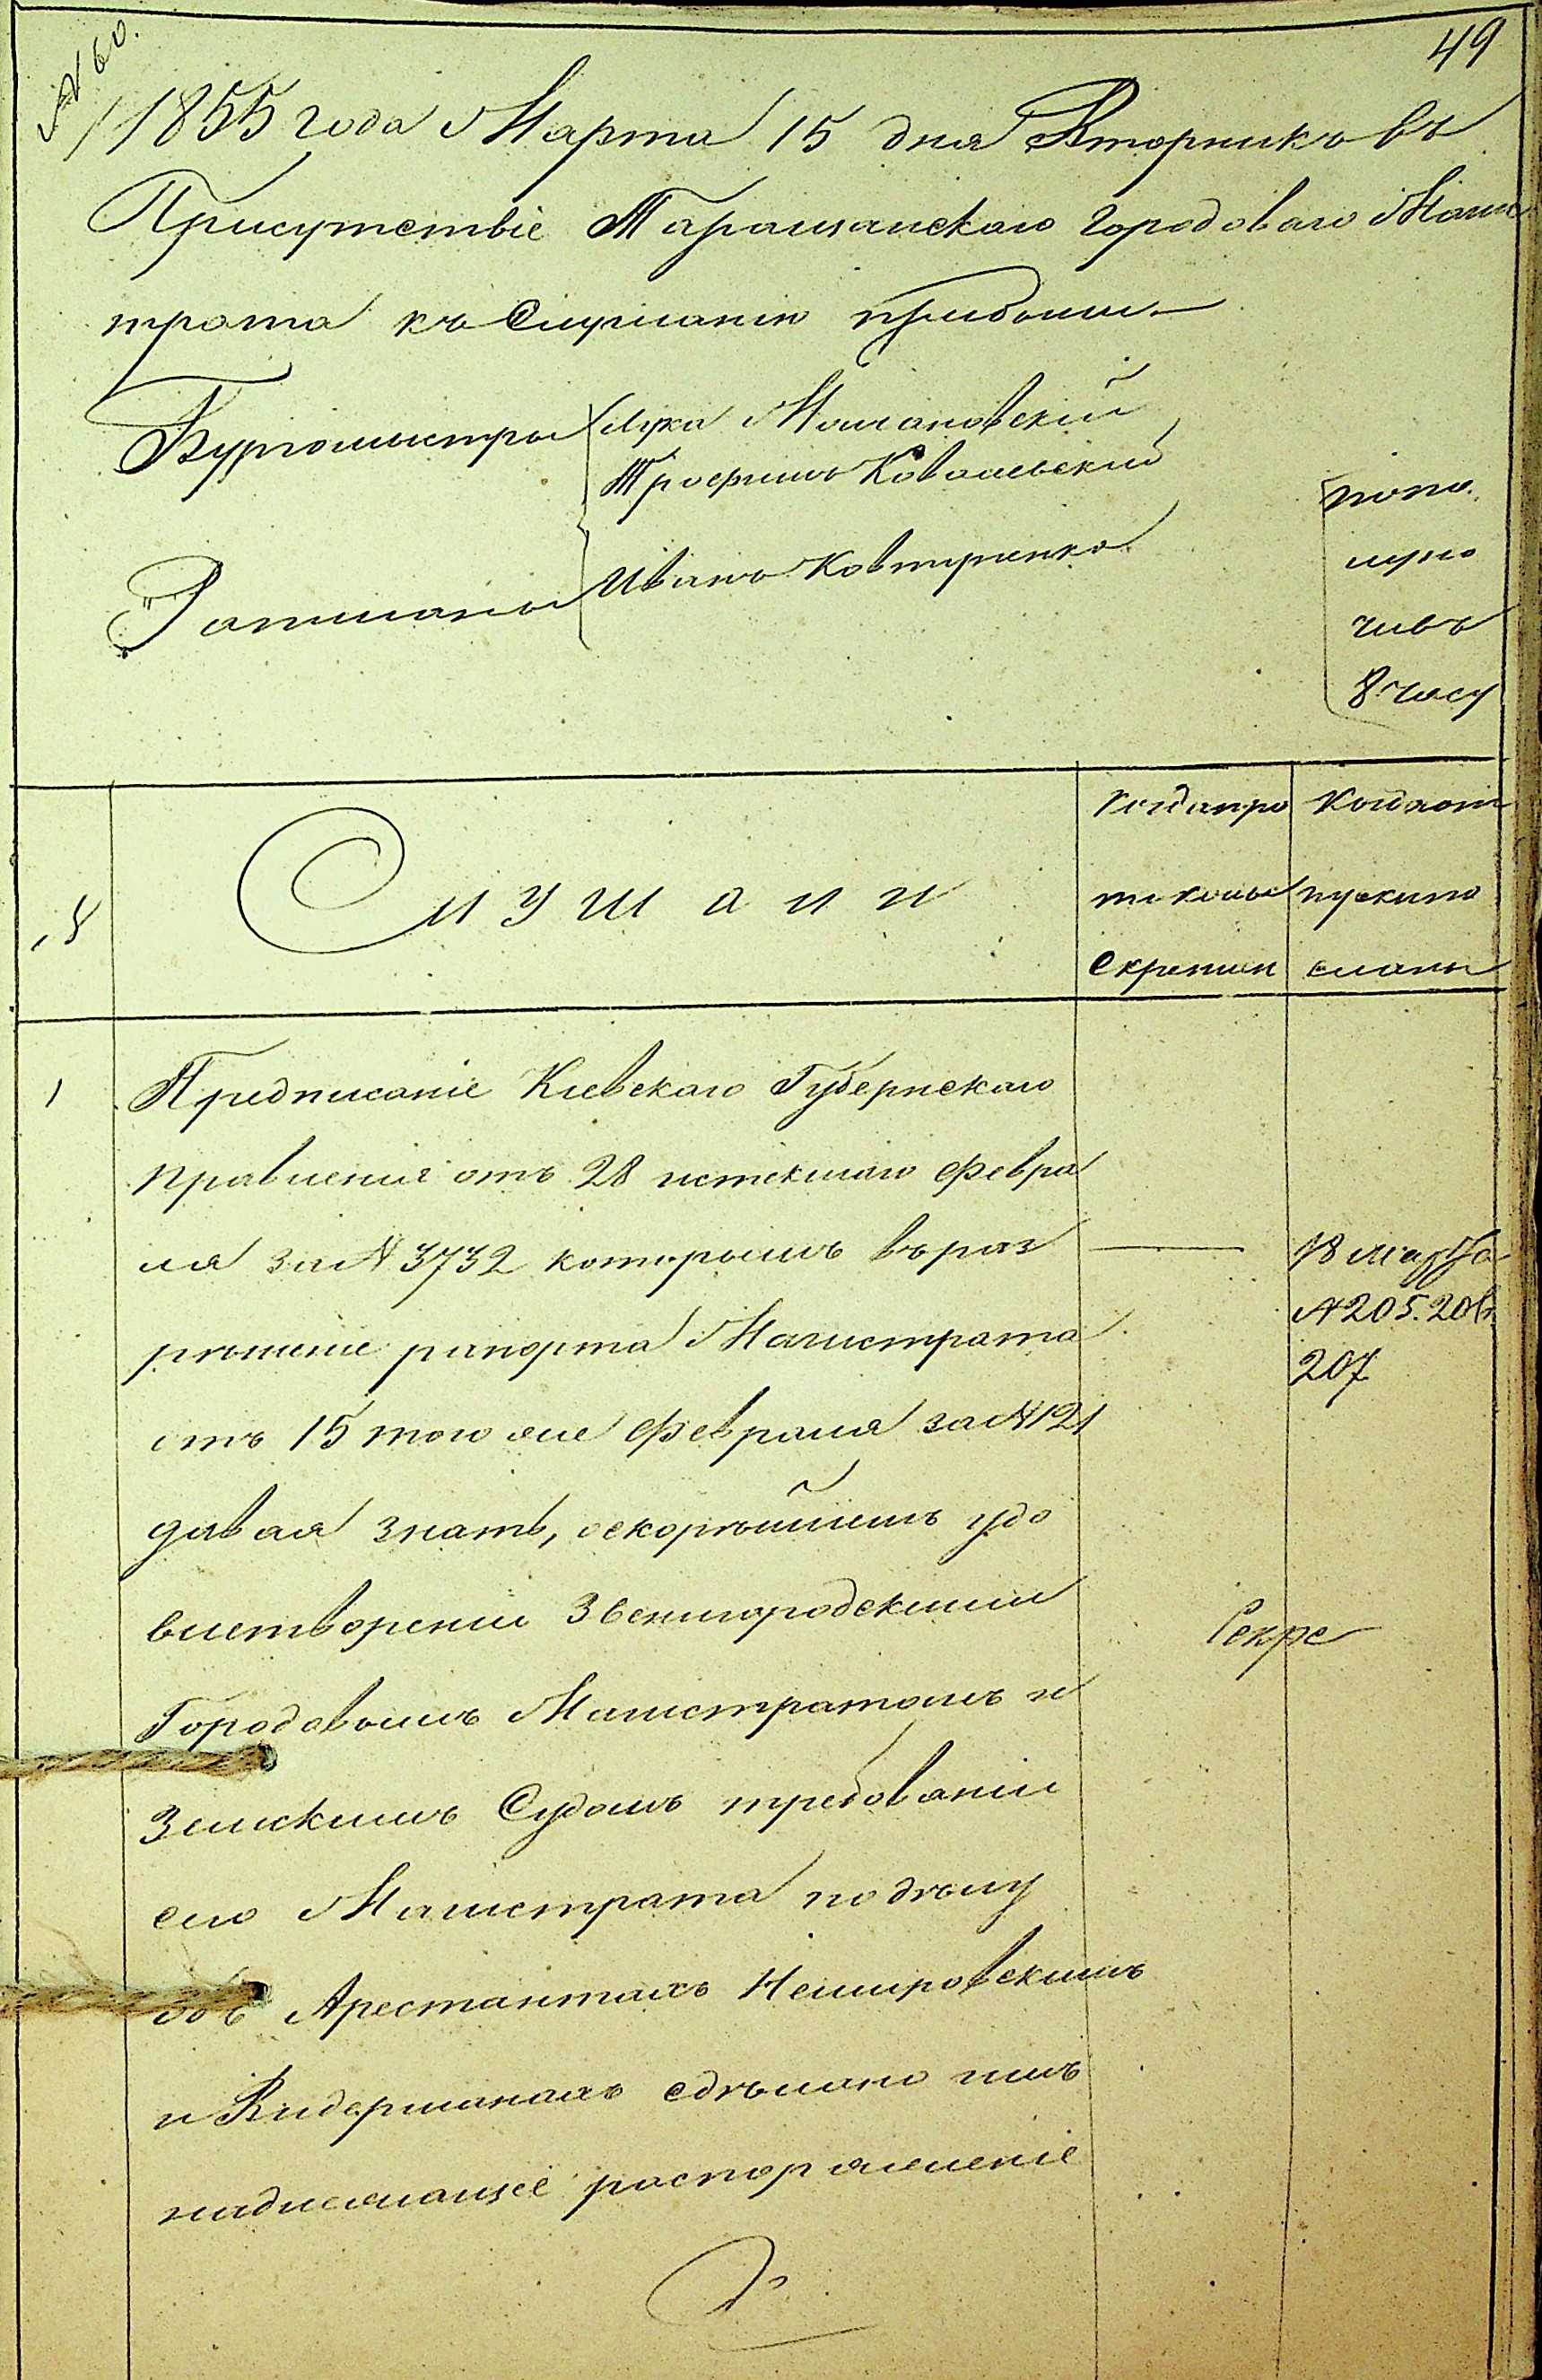 № 60.
49
1855 года Марта 15 дня Вторникъ въ
Присутствіе Таращанскаго Городоваго Магис
трата къ Слушанію прибыли
Бургомистры
Лука
Трофимъ Ковалевский
Ратманы
Иванъ Ковтуненко
попо.
луно
чивъ
8 часу
№
Слушали
Когда про
токолы
Скреплен
Когда от
пуски по
сланы
1
Предписаніе Кіевскаго Губернскаго
Правленія отъ 28 истекшаго Февра
ля за № 3732 которымъ въ раз
решеніе рапорта Магистрата
отъ 15 того же Февраля за № 121
давая знать, о скорѣйшемъ удо
влетвореніи Звенигородскими
Городовымъ Магистратомъ и
Земскимъ Судомъ требованій
сего Магистрата по дѣлу
объ Арестантахъ Немировскимъ
и Видерманахъ сдѣлано имъ
надлежащее распоряженіе
18 марта
№ 205. 206.
207
Секре